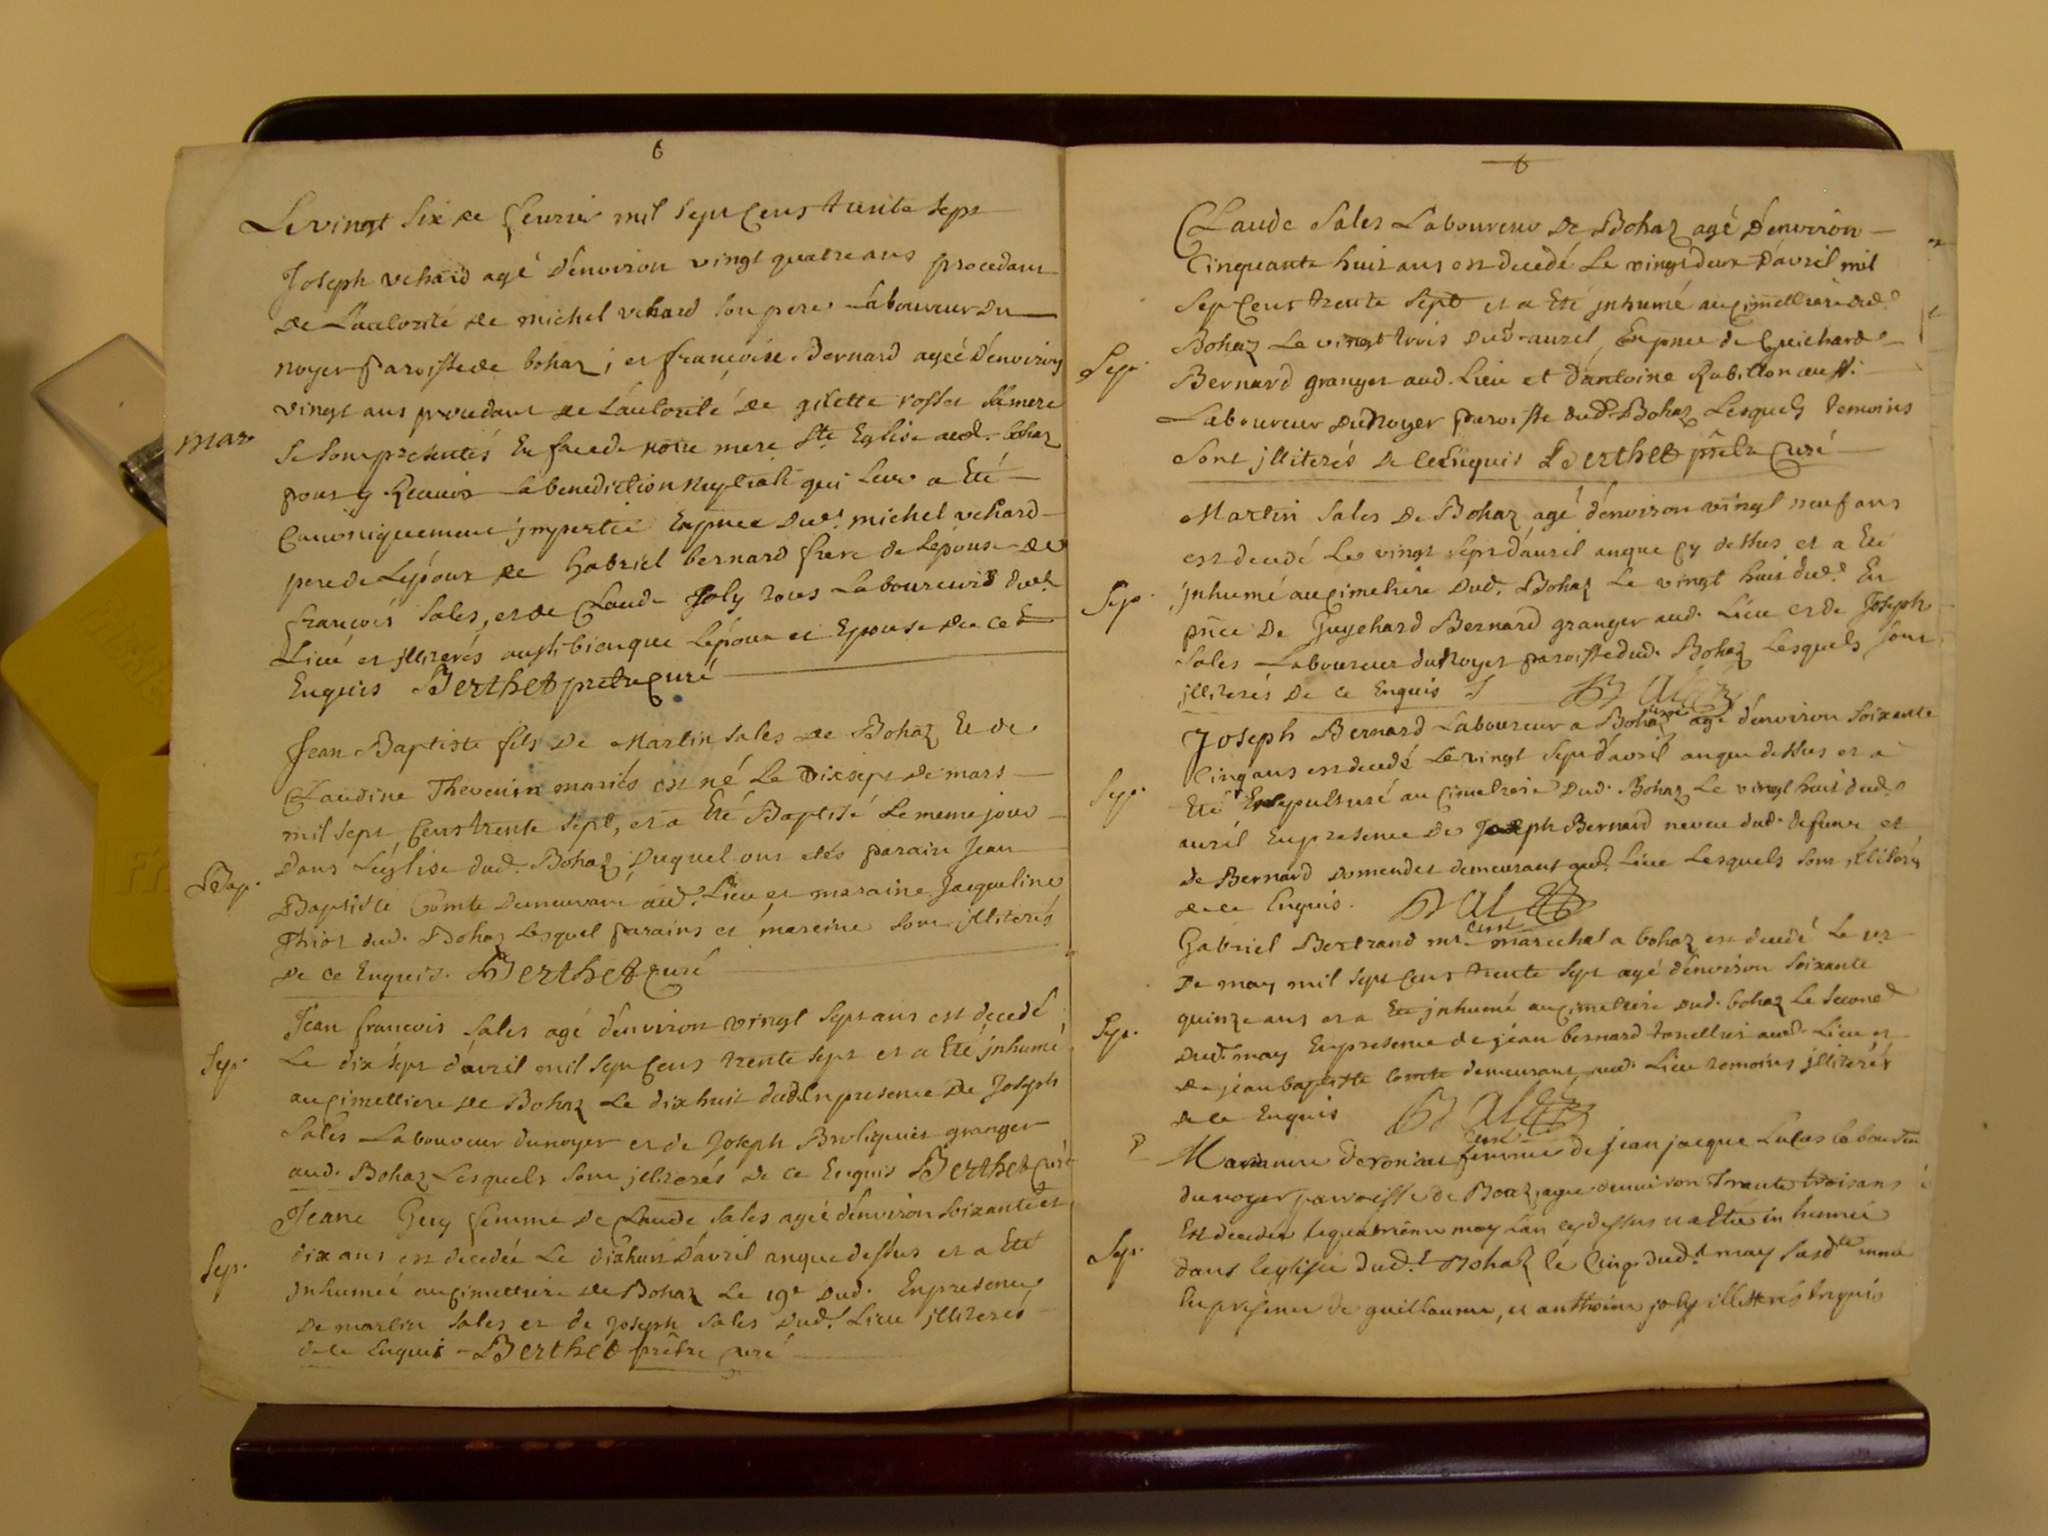 6
Le vingt six de feurier mil sept Cens trente sept
Joseph vehard agé d'environ vingt quatre ans procedant
de L'autorité de michel vehard son pere Laboureur du
noyer paroisse de bohaz ; et francoise Bernard ageé d'environ
vingt ans procedant de L'autorité de gilette rosset sa mere
mar
se sont presentés En face de notre mere Ste Eglise aud. bohaz
pour y Recevoir La benediction Nuptiale qui Leur a Eté
Canoniquement jmpertie En pnce dud. michel vehard
pere de L'epoux de Gabriel bernard frere de Lepouse de
francois Sales, et de Claude Joly tous Laboureurs dud.
Lieu et jlliterés aussi bien que L'epoux et Epouse de ce
Enquis Berthet pretre Curé
Jean Baptiste fils De Martin Sales de Bohaz Et de
Claudine Thevenin mariés est né Le Dix sept De mars
mil sept Cens trente sept, et a Eté Baptisé Le meme jour
Dans L'eglise dud. Bohaz, Duquel ont etés parain Jean
Bap.
Baptiste Comte Demeurant aud. Lieu et maraine Jacqueline
dud. Bohaz Lesquel parains et mareine sont jlliterés
De ce Enquis. Berthet Curé
Jean francois Sales agé d'environ vingt sept ans est decedé
Sep.
Le dix sept d'avril mil sept Cens trente sept et a Eté jnhumé
au Cimettiere de Bohaz Le dix huit dud. En presence De Joseph
Sales Laboureur du noyer et de Joseph Broliquier granger
aud. Bohaz Lesquels sont jlliterés de ce Enquis Berthet Curé
Jeane Guy femme De Claude Sales ageé d'environ soixante et
Sep.
dix ans est decedée Le dix huit d'avril an que dessus et a Eté
Inhumeé au Cimettiere de Bohaz Le 19e Dud. En presence
De martin Sales et de Joseph Sales Dud. Lieu jlliterés
de ce Enquis Berthet prêtre Curé
6
Claude Sales Laboureur De Bohaz agé D'environ
Cinquante huit ans est decedé Le vingt deux d'avril mil
Sept Cens trente Sept et a Eté jnhumé au Cimettiere dud.
Bohaz Le vingt trois Dud. avril, En pnce de Guichard
Sep.
Bernard granger aud. Lieu et d'antoine Rabillon aussi
Laboureur du Noyer paroisse dud. Bohaz Lesquels temoins
sont jlliterés De ce Enquis Berthet prêtre Curé
Martin Sales De Bohaz agé d'environ vingt neuf ans
est decedé Le vingt sept d'avril an que cy dessus et a Eté
Sep.
jnhumé au Cimetiere Dud. Bohaz Le vingt huit dud. En
pnce De Guychard Bernard granger aud. Lieu et de Joseph
Sales Laboureur du Noyer paroisse dud. Bohaz Lesquels sont
jlliterés De ce Enquis
curé
Joseph Bernard Laboureur a Bohaz agé d'environ soixante
Cinq ans est decedé Le vingt sept d'avril an que dessus et a
Sep.
Eté Ensepulturé au Cimetiere Dud. Bohaz Le vingt huit dud.
avril En presence De Joseph Bernard neveu dud. defunt et
de Bernard demeurant aud. Lieu Lesquels sont jlliterés
de ce Enquis.
curé
Gabriel Bertrand mre marechal a bohaz est decedé Le 1er
De may mil sept Cens trente sept agé d'environ soixante
quinze ans et a Eté jnhumé au Cimetiere Dud. bohaz Le second
Sep.
Dud. may En presence de jean bernard aud. Lieu et
de jean baptiste Comte demeurant aud. Lieu temoins jlliterés
de ce Enquis
curé
Marianne femme de jean jacque Lucas
du noyer parroisse de Boaz, agée d'environ Trante trois ans
Est decedée le quatrieme may L'an cy dessus et a Eté inhumée
Sep.
dans leglise dud.t Bohaz le Cinq dud.t may
En presence de guillaume, et anthoine joly illitterés Enquis